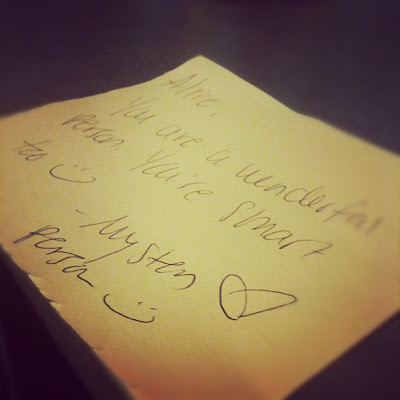 You are a wonderful
person. You're smart
too :)
- Mystery
person :)